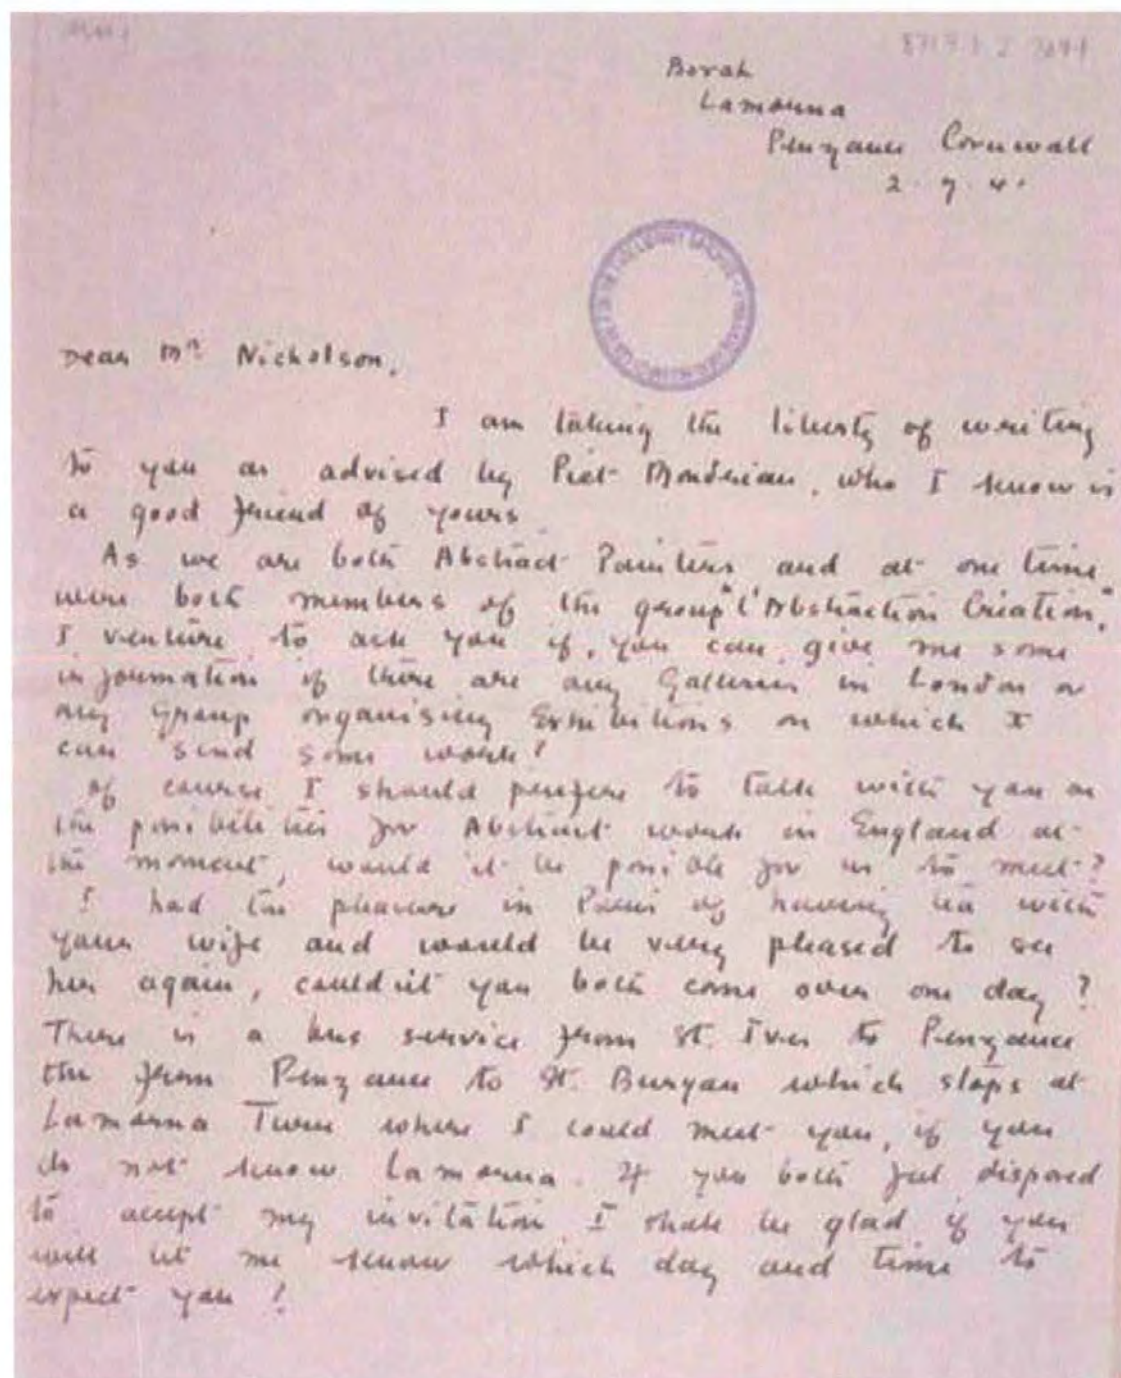 8717.1.2
Borah
Lamorna
Penzance Cornwall
2.7.4
Dear Mr Nicholson,
I am taking the liberty of writing
to you as advised by Piet Mondrian, who I know is
a good friend of yours
As we are both Abstract Painters and at one time
were both members of the group "l'Abstraction Création,"
I venture to ask you if, you can, give me some
information if there are any Galleries in London or
any Group organising Exhibitions on which I
can send some work?
Of course I should prefere to talk with you on
the posibilities for Abstract work in England at
the moment, would it be posible for us to meet?
I had the pleasure in Paris of having tea with
your wife and would be very pleased to see
her again, could'nt you both come over one day?
There is a bus service from St. Ives to Penzance
the from Penzance to St. Buryan which stops at
Lamorna Turn where I could meet you, if you
do not know Lamorna. If you both feel disposed
to accept my invitation I shall be glad if you
will let me know which day and time to
expect you!